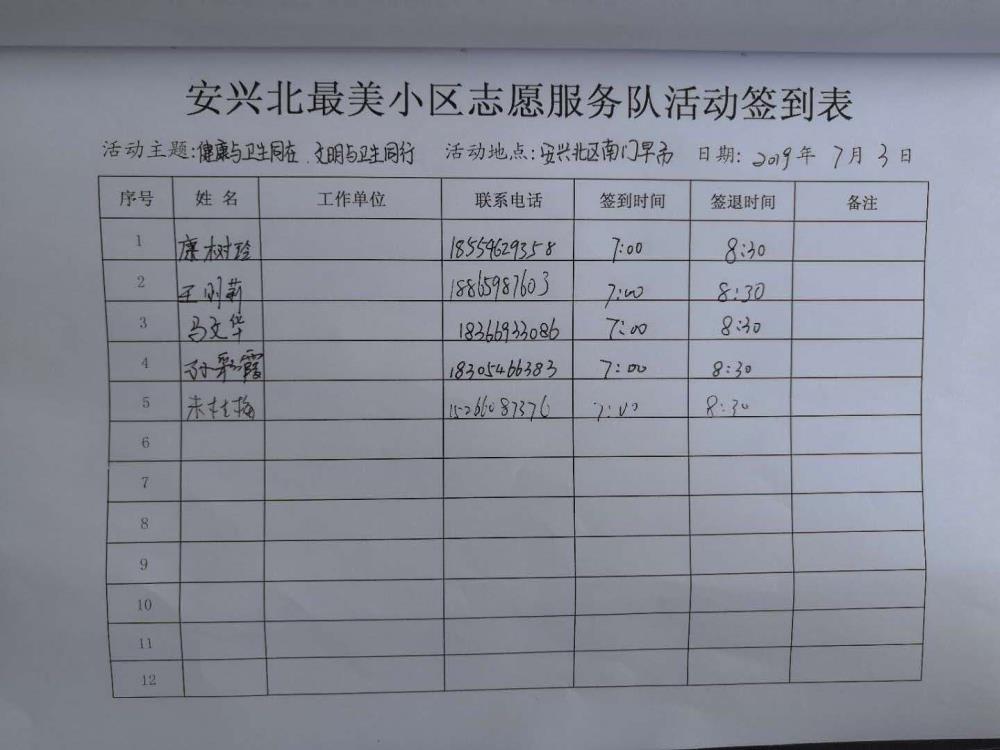 安兴北最美小区志愿服务队活动签到表
活动主题:健康与卫生同在、文明与卫生同行 活动地点:安兴北区南门早市 日期: 2019年 7月 3日
序号 姓名 工作单位 联系电话 签到时间 签退时间 备注
1 康树玲 18554629358 7:00 8:30
2 王明莉 18865987603 7:00 8:30
3 马文华 18366933086 7:00 8:30
4 孙彩霞 18305466383 7:00 8:30
5 桂梅 15266087376 7:00 8:30
6
7
8
9
10
11
12